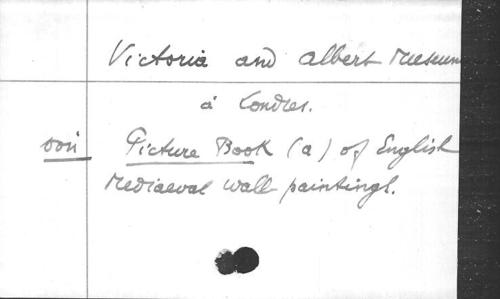 Victoria and Albert Museum
à Londres.
voir Picture Book (a) of English
Mediaeval wall paintings.